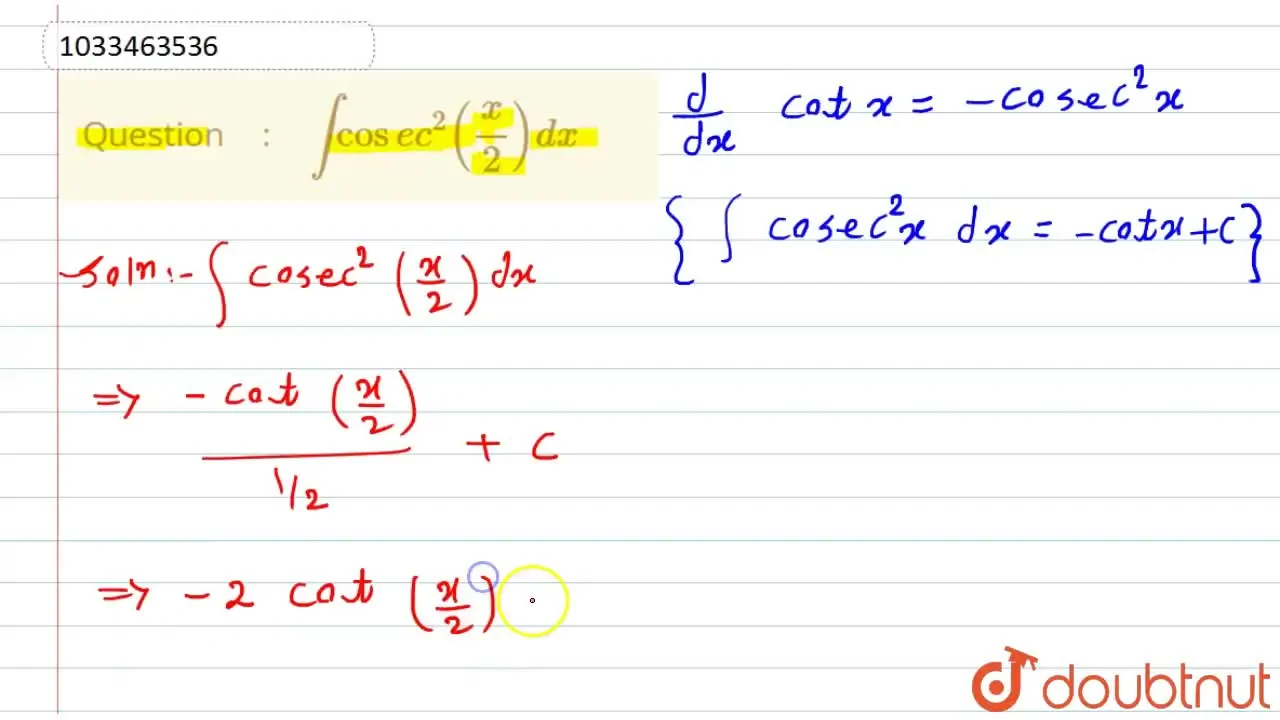 1033463536
Question : ∫cosec²(x/2)dx
d/dx cot x = -cosec²x
{∫ cosec²x dx = -cotx+c}
Soln:- ∫ cosec² (x/2) dx
=> - cot (x/2) / 1/2 + c
=> - 2 cot (x/2)
doubtnut